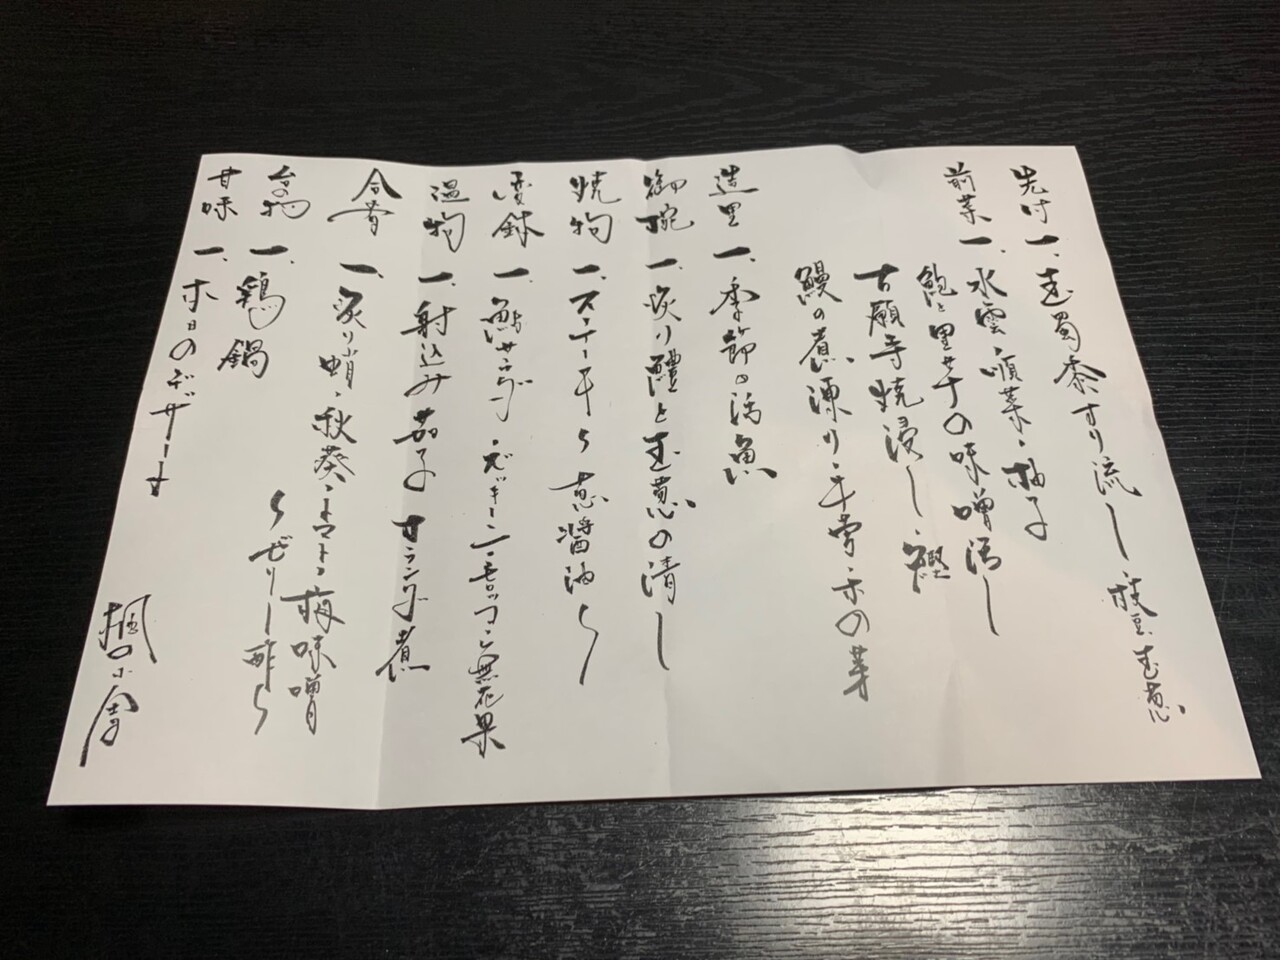 先付 一、玉蜀黍すり流し、枝豆、玉葱
前菜 一、水雲・順菜・柚子
鮑と里芋の味噌浸し
古願寺焼浸し、鰹
鰻の煮凍り・牛蒡・木の芽
造里 一、季節の活魚
御椀 一、炙り鱧と玉葱の清し
焼物 一、ステーキ〜葱醤油〜
凌鉢 一、鮎サラダ、ズッキーニ、モロッコ、無花果
温物 一、射込み茄子オランダ煮
合肴 一、炙り蛸・秋葵・トマト・梅味噌
〜ゼリー酢〜
台の物 一、鶏鍋
甘味 一、本日のデザート
楓の小舎